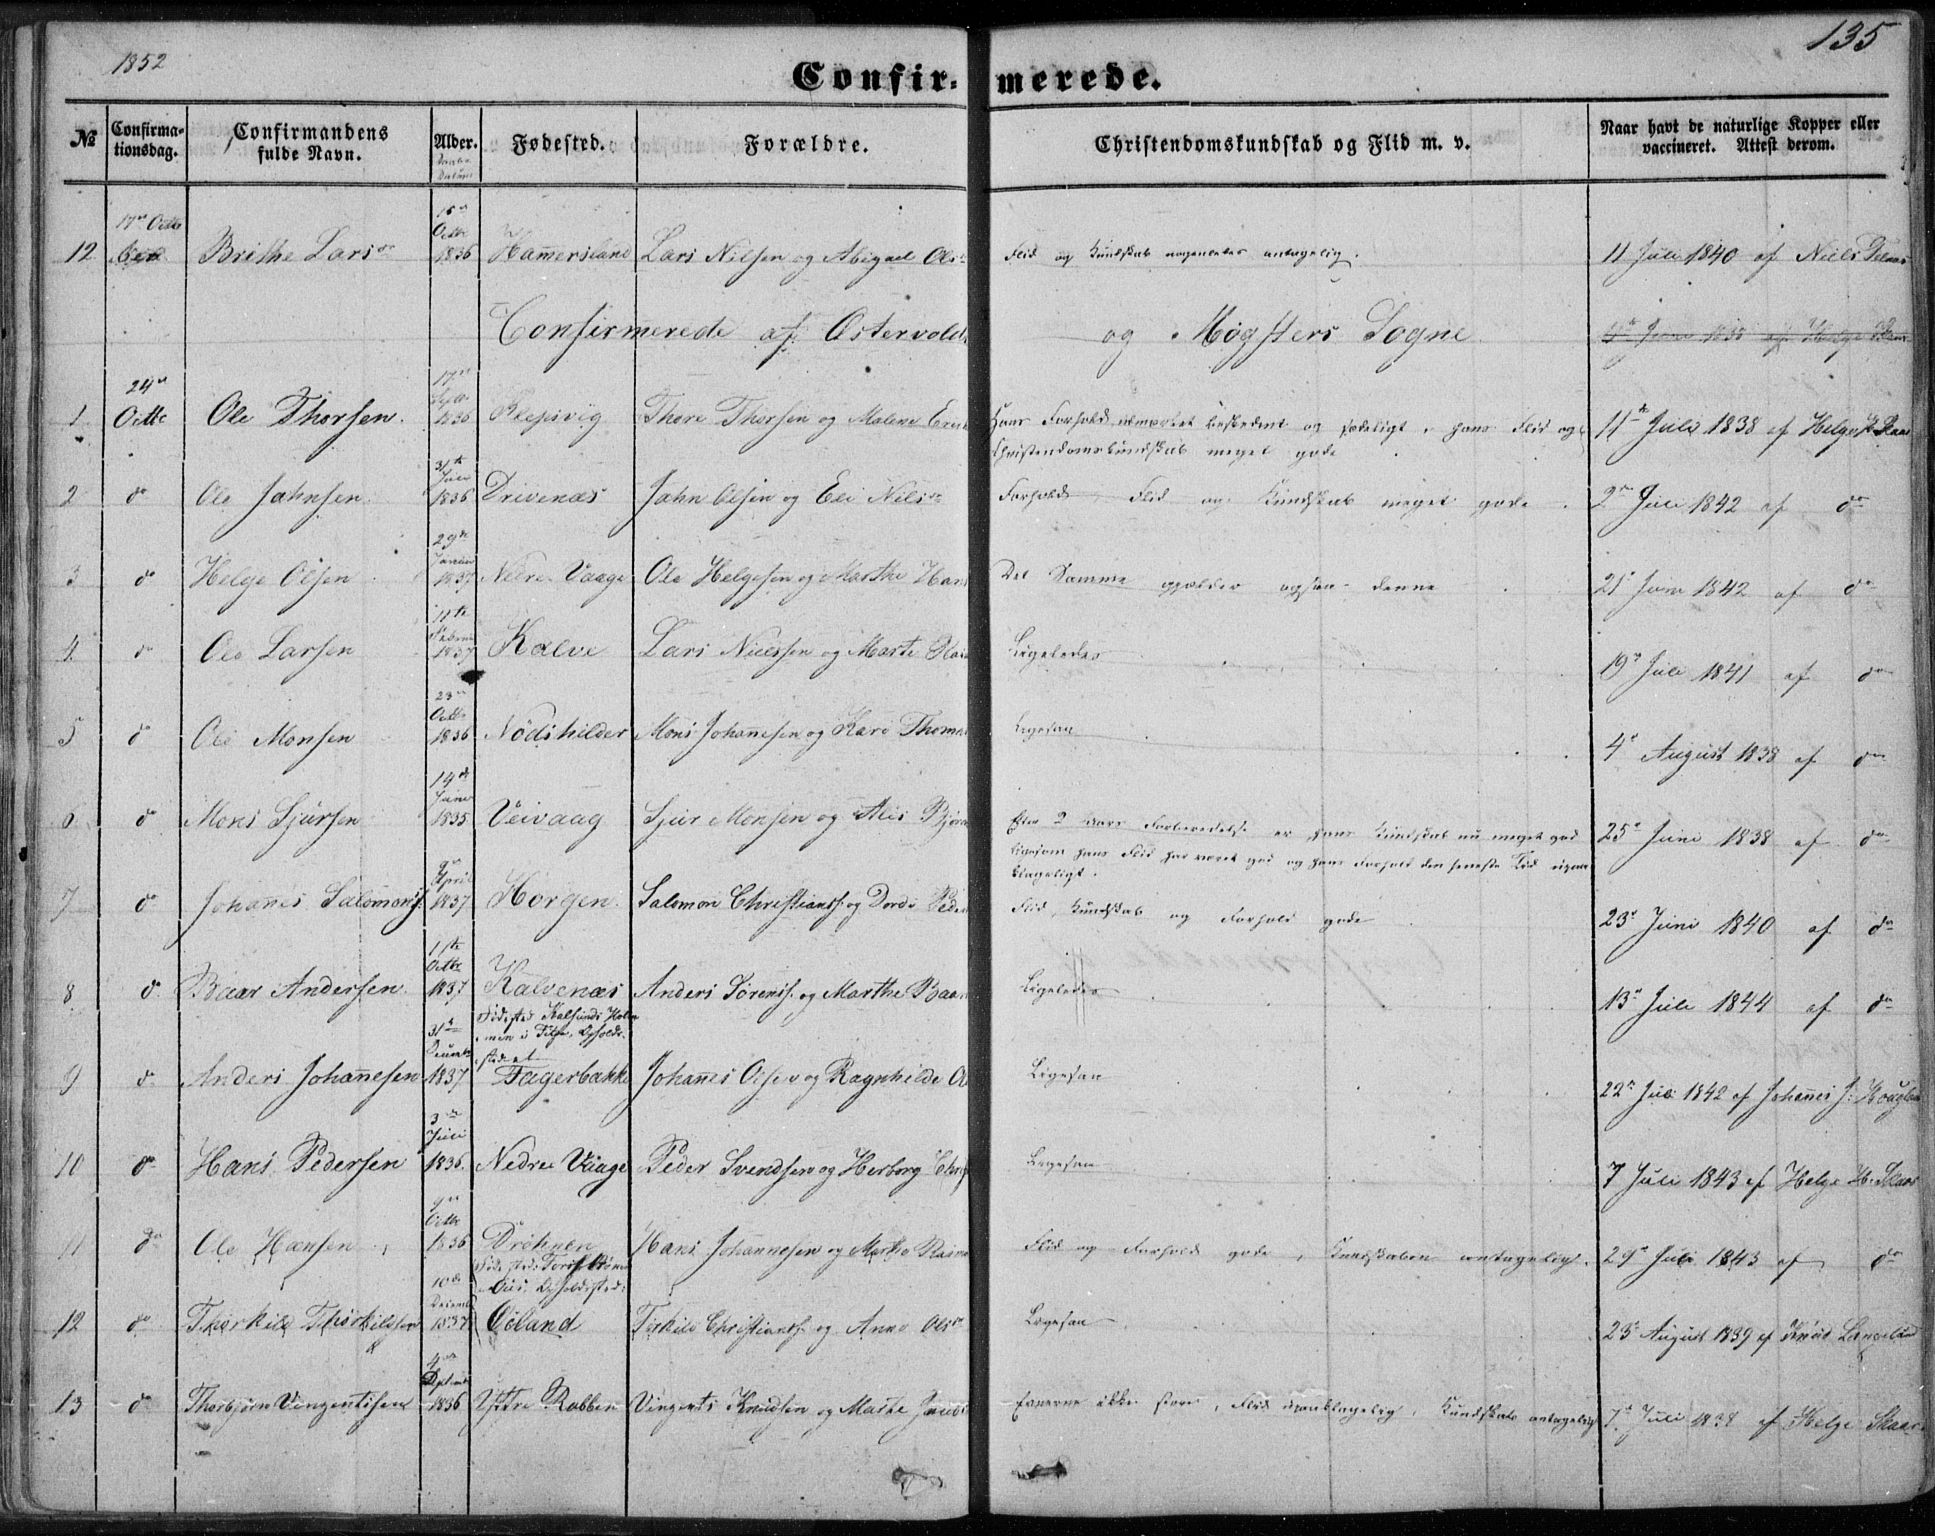 1852
135
Confir- merede.
№ Confirma-tionsdag. Confirmandens fulde Navn. Alder. Fødested. Forældre. Christendomskundskab og Flid m. v. Naar havt de naturlige Kopper eller vaccineret. Attest derom.
Daabs Datum
12 17de Octbr Brithe Larsdr 15de Octbr 1836 Hamersland Lars Nilsen og Abigael Olsdr Flid og Kundskab nogenledes antagelig. 11 Juli 1840 af Niels
Confirmerede af Østervolds og Møgsters Sogne
1 24de Octbr Ole Thorsen. 17de Septbr 1836 Klepsvig Thore Thorsen og Malene Hans Forhold udmærket beskedent og sædeligt, hans Flid og 11te Juli 1838 af Helge H. Skaar
Christendomskundskab meget gode
2 do Ole Jahnsen 31te Juli 1836 Drivenæs Jahn Olsen og Eli Nilsdr Forhold, Flid og Kundskab meget gode. 2den Juli 1842 af do
3 do Helge Olsen 29de Januar 1837 Nedre Vaage Ole Helgesen og Marthe Hans Det Samme gjælder ogsaa denne 21de Juni 1842 af do
4 do Ole Larsen 11te Februar 1837 Kalve Lars Nielssen og Marte Ligeledes 19de Juli 1841 af do
5 do Ole Monsen 23de Octbr 1836 Nødshilder Mons Johanesen og Kari Thomas Ligesaa 4de August 1838 af do
6 do Mons Sjursen 14de Juni 1835 Veivaag Sjur Monsen og Alis Bjørn Efter 2 Aars Forberedelse er hans Kundskab nu meget god 25de Juni 1838 af do
ligesom hans Flid har været god og hans Forhold den seneste Tid upaa-
klageligt.
7 do Johanes Salomons. 9de April 1837 Horgen. Salomon Christians. og Dorde Peder Flid, Kundskab og Forhold gode 23de Juni 1840 af do
8 do Baar Andersen 1ste Octbr 1837 Kalvenæs Anders Sørens. og Marthe Baar Ligeledes 13de Juli 1844 af do
9 do Anders Johanesen 31te 1837 Fødested Kalsunds Holm-
men i Fitje, Opholds-
stedet
Fagerbakke Johanes Olsen og Ragnhilde Ol Ligesaa 22de Juli 1842 af Johanes J. Houglan
10 do Hans Pedersen 3de Juli 1836. Nedre Vaage Peder Svendsen og Herborg Chris Ligesaa 7 Juli 1843 af Helge H. Skaar
11 do Ole Hansen 9de Octbr 1836 Drøhnen Hans Johannesen og Martha Rasm Flid og Forhold gode, Kundskaben antagelig. 29de Juli 1843 af do
12 do Thorkild Thorkildsen 10de Decemb 1837 Opholdssted: Øeland Torkild Christians. og Anna Olsdr Ligesaa 23de August 1839 af Knud Langeland
13 do Thorbjørn Vingentsen 4de Septemb 1836 Yttre Rabben Vingents Knudsen og Marte Evnerne ikke store, Flid upaaklagelig, Kundskab antagelig 7de Juli 1838 af Helge Skaar